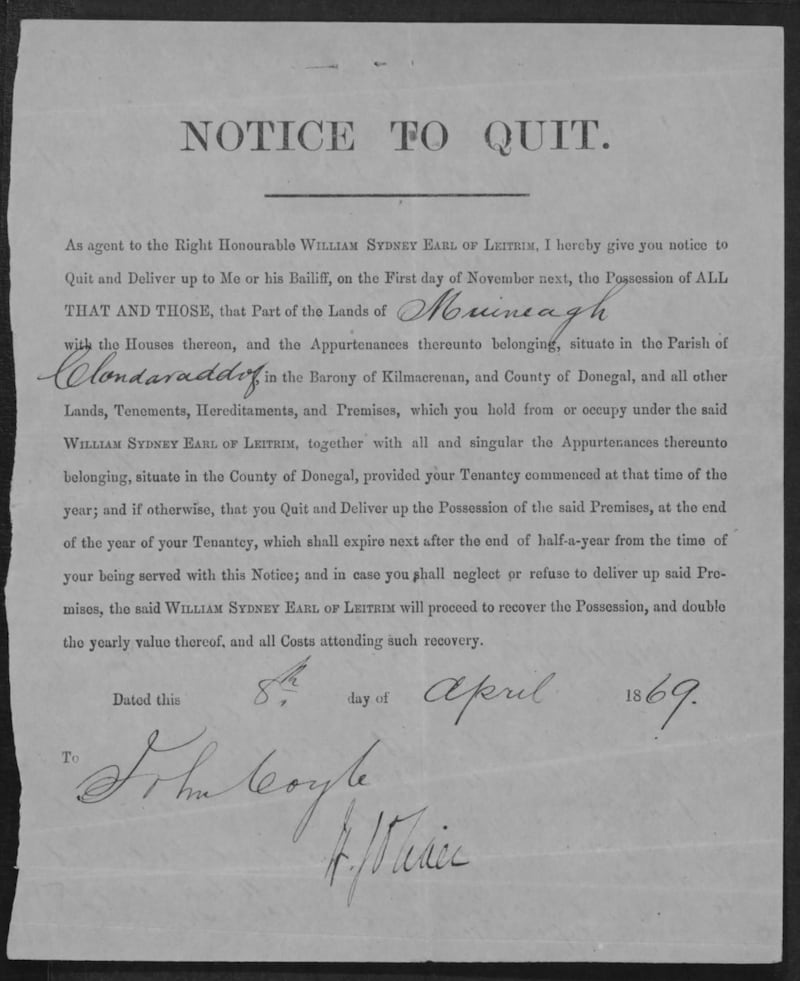 NOTICE TO QUIT.
As agent to the Right Honourable WILLIAM SYDNEY EARL OF LEITRIM, I hereby give you notice to
Quit and Deliver up to Me or his Bailiff, on the First day of November next, the Possession of ALL
THAT AND THOSE, that Part of the Lands of Muineagh
with the Houses thereon, and the Appurtenances thereunto belonging, situate in the Parish of
Clondavaddog, in the Barony of Kilmacrenan, and County of Donegal, and all other
Lands, Tenements, Hereditaments, and Premises, which you hold from or occupy under the said
WILLIAM SYDNEY EARL OF LEITRIM, together with all and singular the Appurtenances thereunto
belonging, situate in the County of Donegal, provided your Tenantcy commenced at that time of the
year; and if otherwise, that you Quit and Deliver up the Possession of the said Premises, at the end
of the year of your Tenantcy, which shall expire next after the end of half-a-year from the time of
your being served with this Notice; and in case you shall neglect or refuse to deliver up said Pre-
mises, the said WILLIAM SYDNEY EARL OF LEITRIM will proceed to recover the Possession, and double
the yearly value thereof, and all Costs attending such recovery.
Dated this 8th. day of April 1869.
To
John Coyle